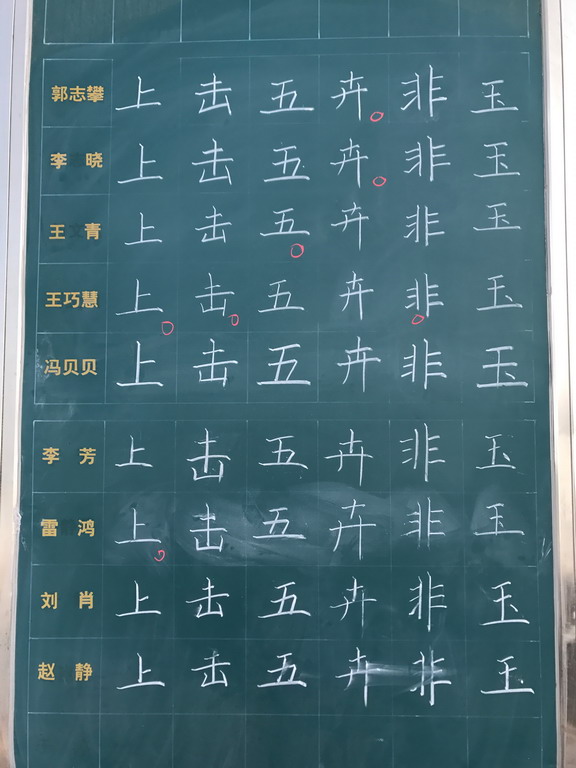 郭志攀 上 击 五 卉 非 玉
李 晓 上 击 五 卉 非 玉
王 青 上 击 五 卉 非 玉
王巧慧 上 击 五 卉 非 玉
冯贝贝 上 击 五 卉 非 玉
李 芳 上 击 五 卉 非 玉
雷 鸿 上 击 五 卉 非 玉
刘 肖 上 击 五 卉 非 玉
赵 静 上 击 五 卉 非 玉